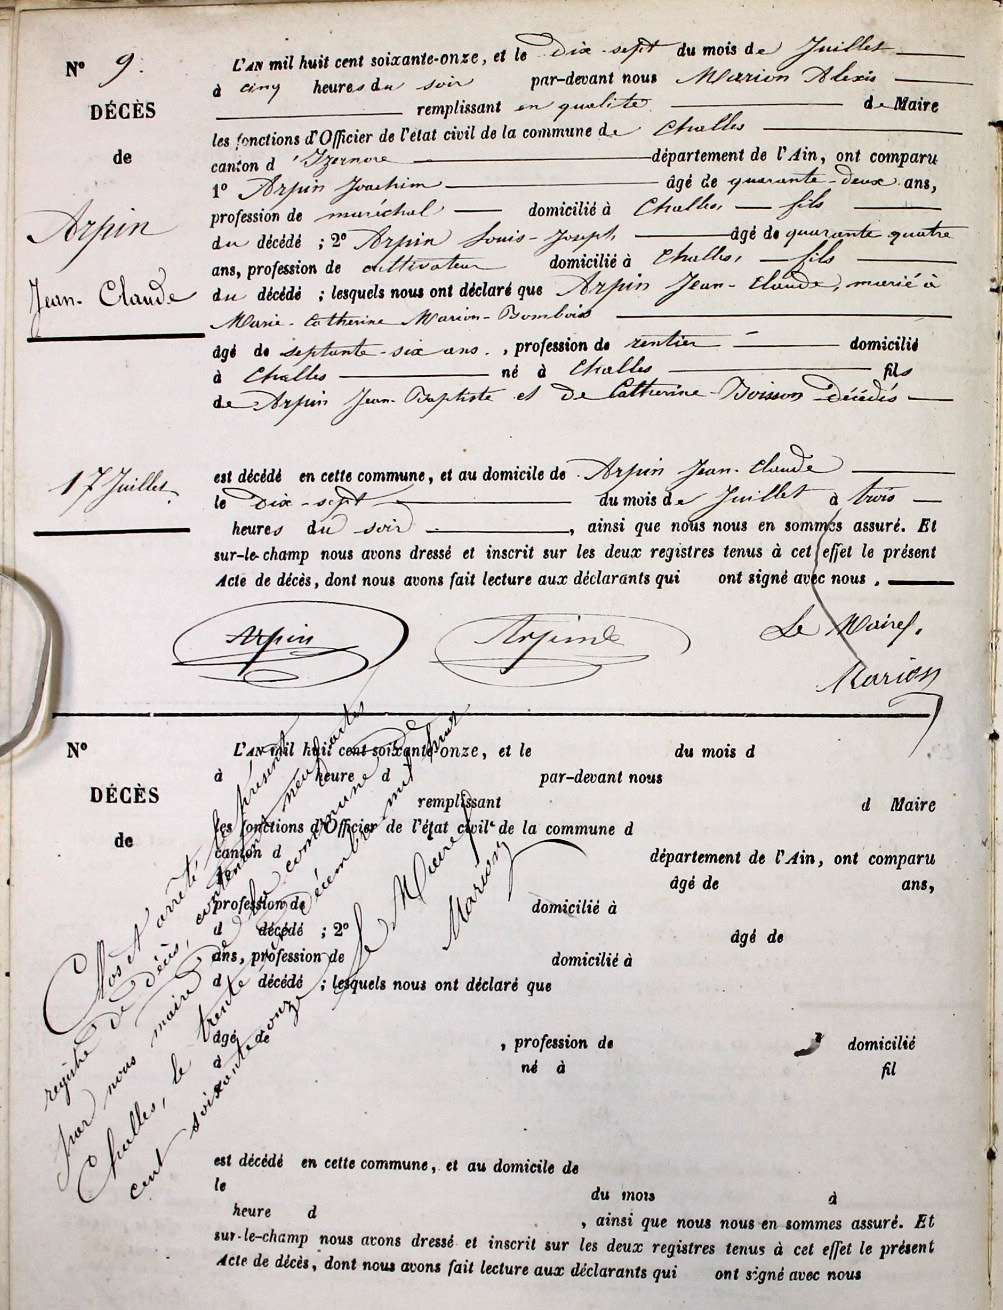 N° 9.
DÉCÈS
de
Arpin
Jean-Claude
L'AN mil huit cent soixante-onze, et le Dix-sept du mois de Juillet
à cinq heures du soir par-devant nous Marion Alexis
remplissant en qualité de Maire
les fonctions d'Officier de l'état civil de la commune de Challes
canton d'Izernore département de l'Ain, ont comparu
1° Arpin Joachim âgé de quarante-deux ans,
profession de maréchal domicilié à Challes, fils
du décédé ; 2° Arpin Louis-Joseph âgé de quarante quatre
ans, profession de cultivateur domicilié à Challes, fils
du décédé ; lesquels nous ont déclaré que Arpin Jean-Claude, marié à
Marie-Catherine Marion-Bombois
âgé de septante-six ans, profession de rentier domicilié
à Challes né à Challes fils
de Arpin Jean-Baptiste et de Catherine-Boisson décédés
17 Juillet.
est décédé en cette commune, et au domicile de Arpin Jean-Claude
le Dix-sept du mois de Juillet à trois
heures du soir, ainsi que nous nous en sommes assuré. Et
sur-le-champ nous avons dressé et inscrit sur les deux registres tenus à cet effet le présent
Acte de décès, dont nous avons fait lecture aux déclarants qui ont signé avec nous.
Arpin
Le Maire,
Marion
N°
DÉCÈS
de
L'AN mil huit cent soixante-onze, et le du mois d
à heure d par-devant nous
remplissant d Maire
les fonctions d'Officier de l'état civil de la commune d
canton d département de l'Ain, ont comparu
âgé de ans,
profession de domicilié à
d décédé ; 2° âgé de
ans, profession de domicilié à
d décédé ; lesquels nous ont déclaré que
âgé de , profession de domicilié
à né à fil
est décédé en cette commune, et au domicile de
le du mois à
heure d , ainsi que nous nous en sommes assuré. Et
sur-le-champ nous avons dressé et inscrit sur les deux registres tenus à cet effet le présent
Acte de décès, dont nous avons fait lecture aux déclarants qui ont signé avec nous
Clos et arrêté le présent
registre de décès, contenant neuf actes
par nous maire de la commune de
Challes, le trente un décembre mil huit
cent soixante onze
Le Maire
Marion